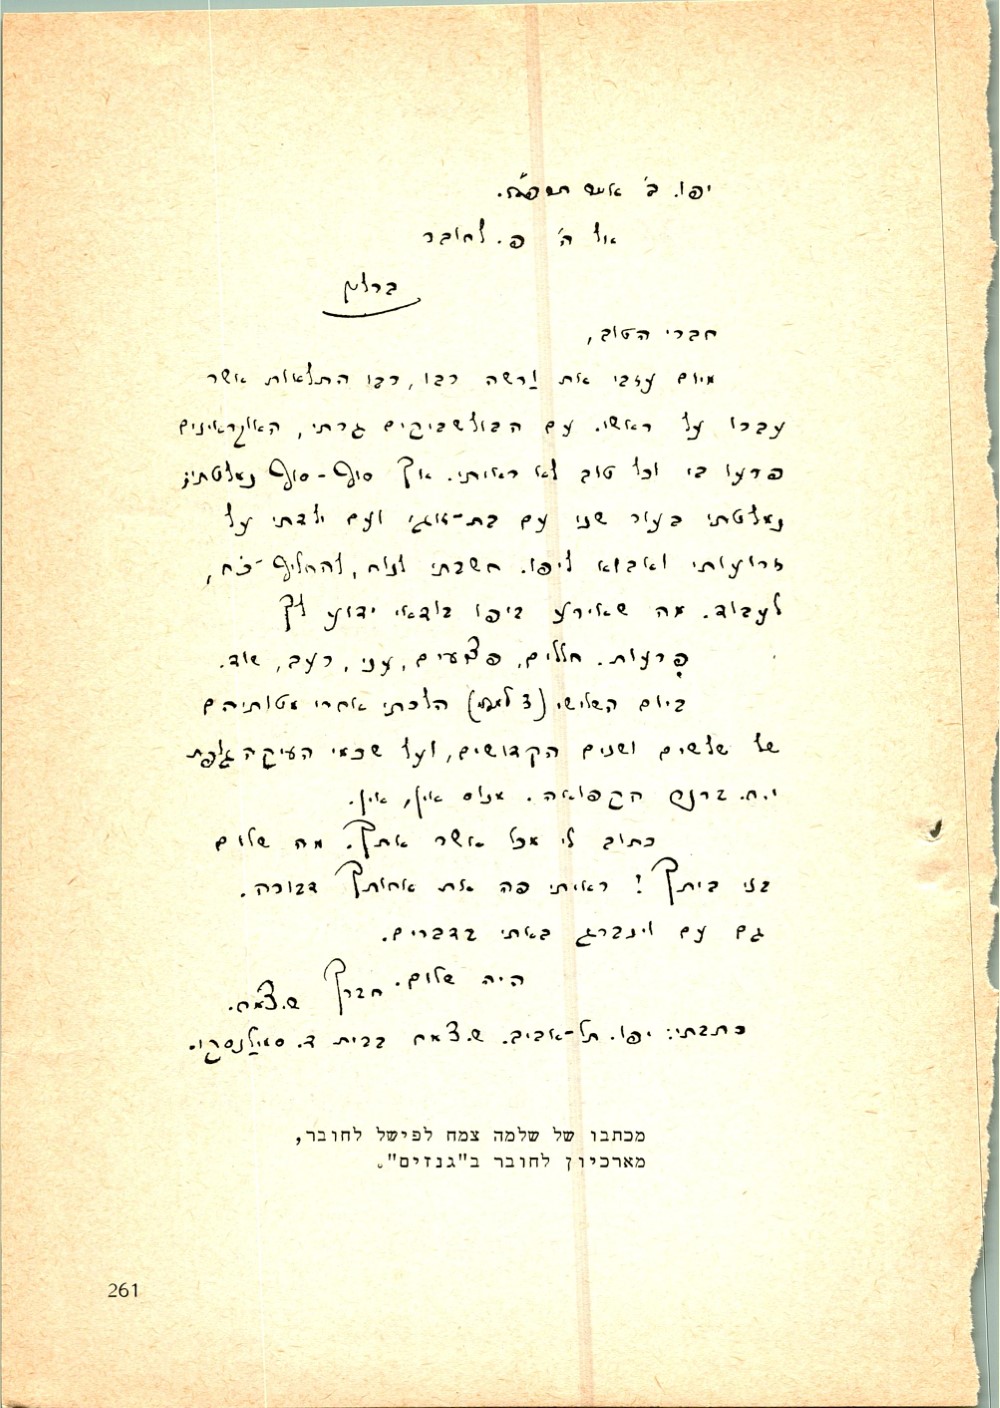 יפו. ב'
אל ה' פ. לחובר
ברלין
חברי הטוב,
מיום עזבי את ורשה רבו, רבו התלאות אשר
עברו על ראשי. עם הבולשביקים גרתי, האוקראינים
פרעו בי וכל טוב לא ראיתי. אך סוף-סוף נמלטתי;
נמלטתי בעור שני עם בת-זוגי ועם ילדתי על
זרועותי ואבוא ליפו. חשבתי לנוח, להחליף-כח,
לעבוד. מה שאירע ביפו בודאי ידוע לך
פרעות. חללים, פצועים, עני, רעב, שוד.
ביום השלישי (3 למאי) הלכתי אחרי מטותיהם
של שלשים ושנים הקדושים, ועל שכמי העיקה גלפת
י.ח. ברנר הקפואה. מנוס אין, אין.
כתוב לי מכל אשר אתך. מה שלום
בני ביתך! ראיתי פה את אחותך דבורה.
גם עם וינברג באתי בדברים.
היה שלום. חברך ש. צמח.
כתבתי: יפו. תל-אביב. ש. צמח בבית ד. סמילנסקי.
מכתבו של שלמה צמח לפישל לחובר,
מארכיון לחובר ב"גנזים".
261